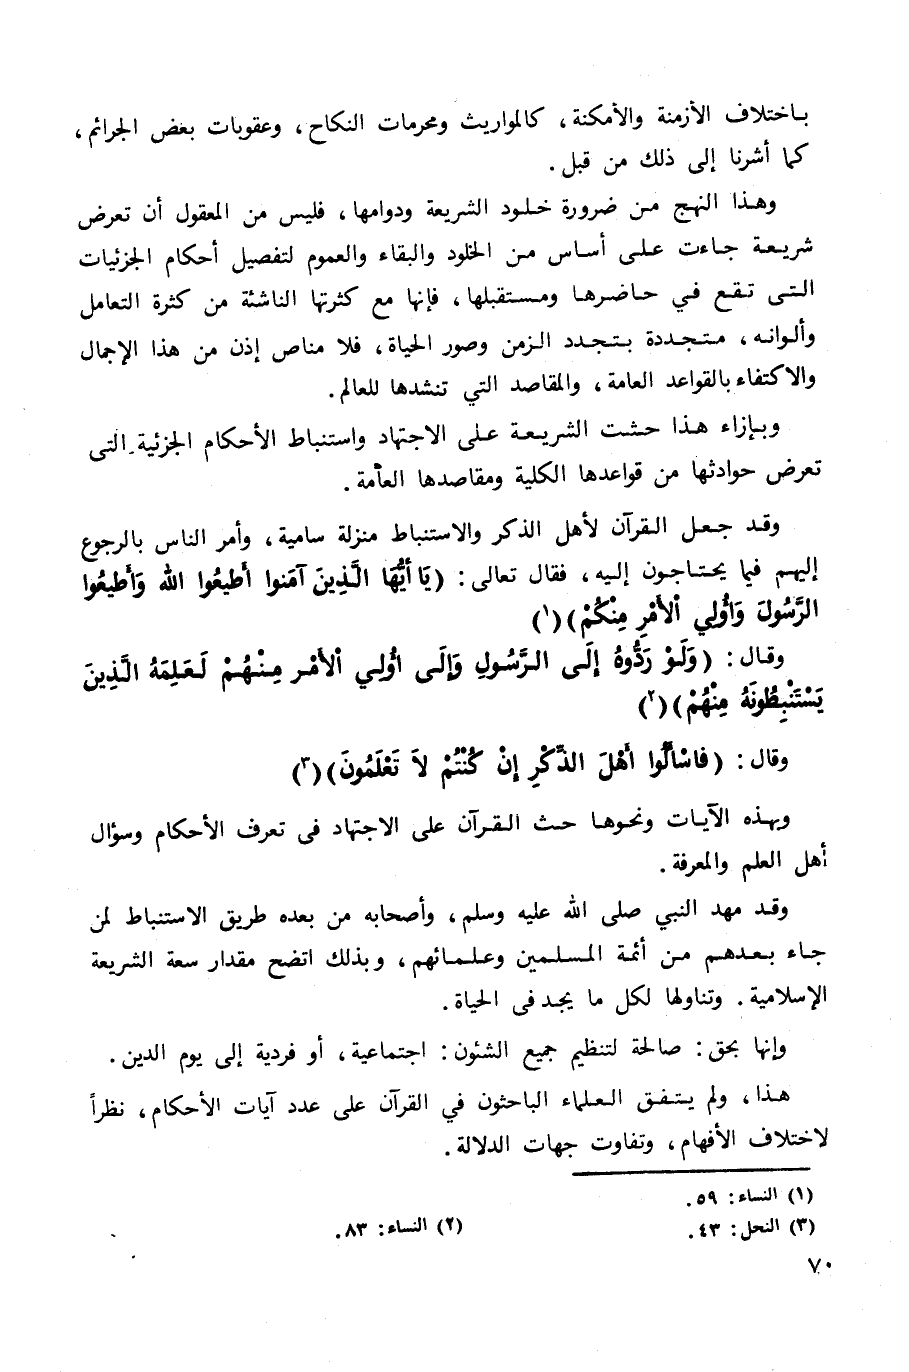 باختلاف الأزمنة والأمكنة، كالمواريث ومحرمات النكاح، وعقوبات بعض الجرائم،
كما أشرنا إلى ذلك من قبل.
وهذا النهج من ضرورة خلود الشريعة ودوامها، فليس من المعقول أن تعرض
شريعة جاءت على أساس من الخلود والبقاء والعموم لتفصيل أحكام الجزئيات
التى تقع في حاضرها ومستقبلها، فإنها مع كثرتها الناشئة من كثرة التعامل
وألوانه، متجددة بتجدد الزمن وصور الحياة، فلا مناص إذن من هذا الإجمال
والاكتفاء بالقواعد العامة، والمقاصد التي تنشدها للعالم.
وبإزاء هذا حثت الشريعة على الاجتهاد واستنباط الأحكام الجزئية التى
تعرض حوادثها من قواعدها الكلية ومقاصدها العامة.
وقد جعل القرآن لأهل الذكر والاستنباط منزلة سامية، وأمر الناس بالرجوع
إليهم فيما يحتاجون إليه، فقال تعالى: (يَا أَيُّهَا الَّذِينَ آمَنوا أطيعُوا الله وَأَطيعُوا
الرَّسُولَ وَأُولِي اْلأَمْرِ مِنْكُمْ)(١)
وقال: (وَلَوْ رَدُّوهُ إلَى الرَّسُولِ وَإلَى أُولِي اْلأَمْرِ مِنْهُمْ لَعَلِمَهُ الَّذِينَ
يَسْتَنْبِطُونَهُ مِنْهُمْ)(٢)
وقال: (فَاسْأَلُوا أَهْلَ الذِّكْرِ إنْ كُنْتُمْ لاَ تَعْلَمُونَ)(٣)
وبهذه الآيات ونحوها حث القرآن على الاجتهاد فى تعرف الأحكام وسؤال
أهل العلم والمعرفة.
وقد مهد النبي صلى الله عليه وسلم، وأصحابه من بعده طريق الاستنباط لمن
جاء بعدهم من أئمة المسلمين وعلمائهم، وبذلك اتضح مقدار سعة الشريعة
الإسلامية. وتناولها لكل ما يجد فى الحياة.
وإنها بحق: صالحة لتنظيم جميع الشئون: اجتماعية، أو فردية إلى يوم الدين.
هذا، ولم يتفق العلماء الباحثون في القرآن على عدد آيات الأحكام، نظراً
لاختلاف الأفهام، وتفاوت جهات الدلالة.
(١) النساء: ٥٩.
(٣) النحل: ٤٣. (٢) النساء: ٨٣.
٧٠